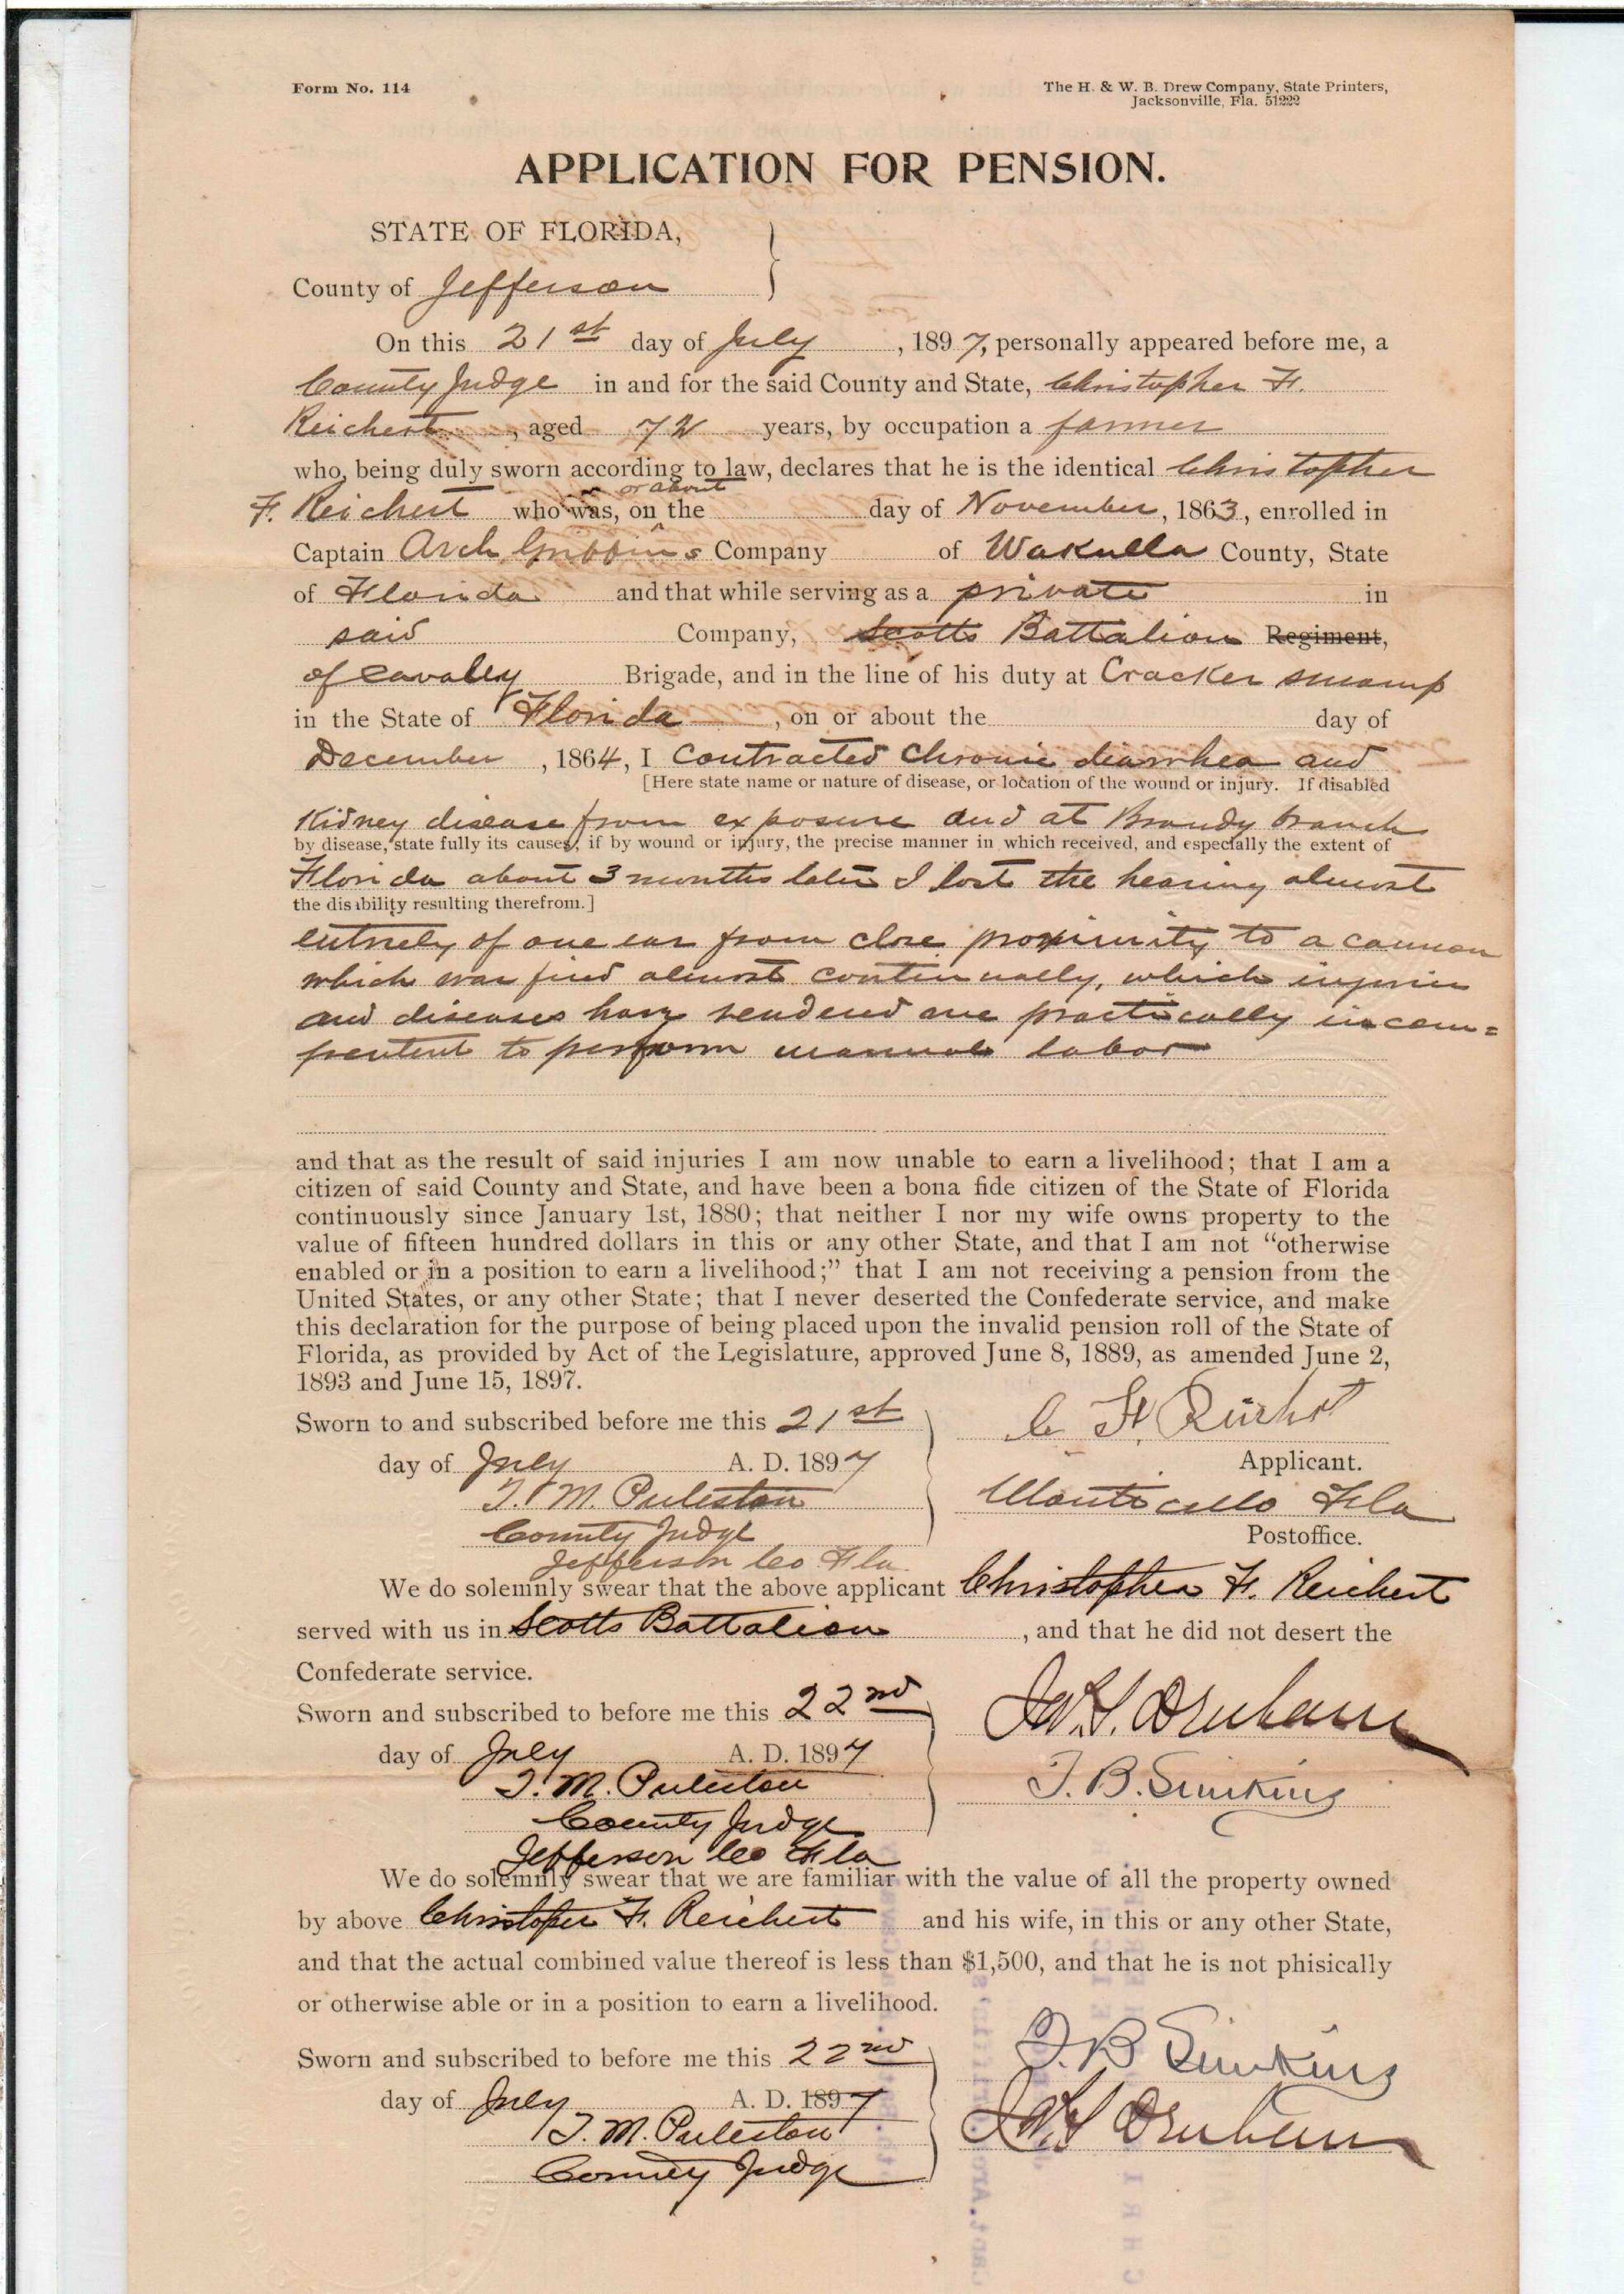 Form No. 114
The H. & W. B. Drew Company, State Printers,
Jacksonville, Fla. 51222
APPLICATION FOR PENSION.
STATE OF FLORIDA,
County of Jefferson
On this 21st day of July, 1897, personally appeared before me, a
County Judge in and for the said County and State, Christopher F.
Reichert, aged 72 years, by occupation a farmer
who, being duly sworn according to law, declares that he is the identical Christopher
or about
F. Reichert who was, on the day of November, 1863, enrolled in
Captain Arch Griffin's Company of Wakulla County, State
of Florida and that while serving as a private in
said Company, Scotts Battalion Regiment,
of Cavalry Brigade, and in the line of his duty at Cracker swamp
in the State of Florida, on or about the day of
December, 1864, I Contracted Chronic diarrhea and
[Here state name or nature of disease, or location of the wound or injury. If disabled
Kidney disease from exposure and at Brandy branch
by disease, state fully its causes; if by wound or injury, the precise manner in which received, and especially the extent of
Florida about 3 months later I lost the hearing almost
the disability resulting therefrom.]
entirely of one ear from close proximity to a cannon
which was fired almost continually, which injuries
and diseases have rendered me practically incom=
pentent to perform manual labor
and that as the result of said injuries I am now unable to earn a livelihood; that I am a
citizen of said County and State, and have been a bona fide citizen of the State of Florida
continuously since January 1st, 1880; that neither I nor my wife owns property to the
value of fifteen hundred dollars in this or any other State, and that I am not "otherwise
enabled or in a position to earn a livelihood;" that I am not receiving a pension from the
United States, or any other State; that I never deserted the Confederate service, and make
this declaration for the purpose of being placed upon the invalid pension roll of the State of
Florida, as provided by Act of the Legislature, approved June 8, 1889, as amended June 2,
1893 and June 15, 1897.
Sworn to and subscribed before me this 21st
C F. Reichert
day of July A. D. 1897
Applicant.
T. M. Puleston
Monticello Fla
County Judge
Postoffice.
Jefferson Co Fla.
We do solemnly swear that the above applicant Christopher F. Reichert
served with us in Scotts Battalion, and that he did not desert the
Confederate service.
Sworn and subscribed to before me this 22nd
day of July A. D. 1897
T. M. Puleston
T. B. Simkins
County Judge
Jefferson Co Fla
We do solemnly swear that we are familiar with the value of all the property owned
by above Christopher F. Reichert and his wife, in this or any other State,
and that the actual combined value thereof is less than $1,500, and that he is not phisically
or otherwise able or in a position to earn a livelihood.
Sworn and subscribed to before me this 22nd
T. B Simkins
day of July A. D. 1897
T. M. Puleston
County Judge